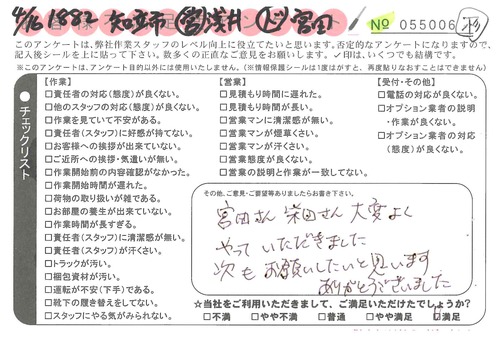 4/16 1882 知立市 営 浅井 ピ 宮田
№ 055006 杉
このアンケートは、弊社作業スタッフのレベル向上に役立てたいと思います。否定的なアンケートになりますので、
記入後シールを上に貼って下さい。数多くの正直なご意見をお願いします。✓印は、いくつでも結構です。
※このアンケートは、アンケート目的以外には使用いたしません。(※情報保護シールは1度はがすと、再度貼りなおすことはできません)
チェックリスト
【作業】
□責任者の対応(態度)が良くない。
□他のスタッフの対応(態度)が良くない。
□作業を見ていて不安がある。
□責任者(スタッフ)に好感が持てない。
□お客様への挨拶が出来ていない。
□ご近所への挨拶・気遣いが無い。
□作業開始前の内容確認がなかった。
□作業開始時間が遅れた。
□荷物の取り扱いが雑である。
□お部屋の養生が出来ていない。
□作業時間が長すぎる。
□責任者(スタッフ)に清潔感が無い。
□責任者(スタッフ)が汗くさい。
□トラックが汚い。
□梱包資材が汚い。
□運転が不安(下手)である。
□靴下の履き替えをしてない。
□スタッフにやる気がみられない。
【営業】
□見積もり時間に遅れた。
□見積もり時間が長い。
□営業マンに清潔感が無い。
□営業マンが煙草くさい。
□営業マンが汗くさい。
□営業態度が良くない。
□営業の説明と作業が一致してない。
【受付・その他】
□電話の対応が良くない。
□オプション業者の説明
・作業が良くない。
□オプション業者の対応
(態度)が良くない。
その他、ご意見・ご要望等ありましたらお書き下さい。
宮田さん 柴田さん 大変よく
やって いただきました
次も お願いしたいと思います
ありがとうございました
☆当社をご利用いただきまして、ご満足いただけたでしょうか?
□不満 □やや不満 □普通 □やや満足 □満足